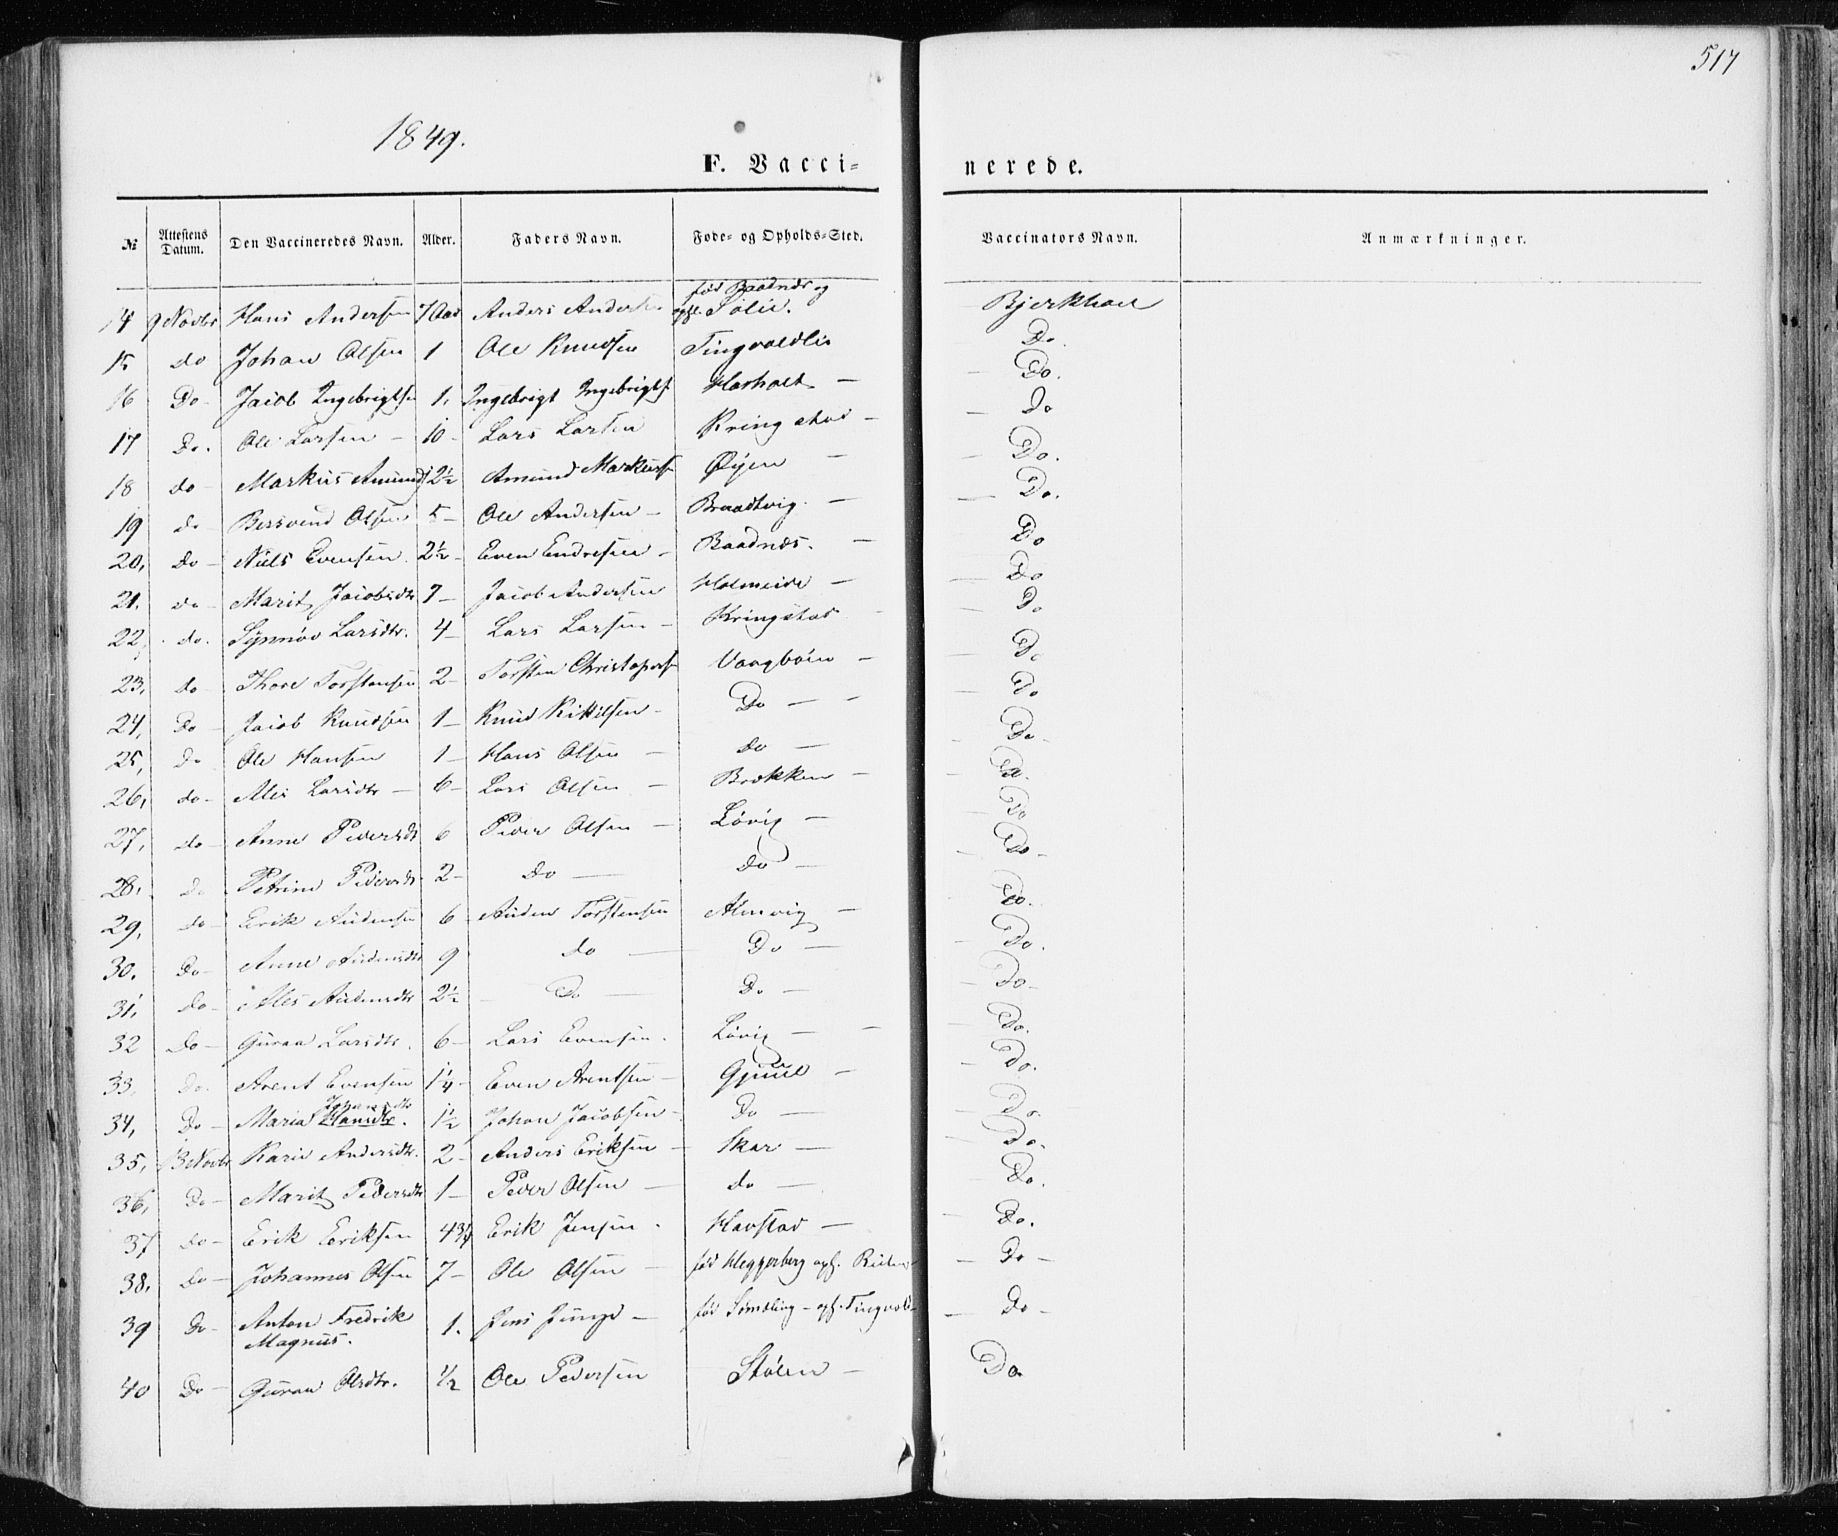 517
1849.
F. Vacci-nerede.
№ Attestens Datum. Den Vaccineredes Navn. Alder. Faders Navn. Føde- og Opholds-Sted. Vaccinators Navn. Anmærkninger.
14 9 Novbr Hans Andersen 7 Aar Anders Anders. fød Baadnes og oph. Solie. Bjerkhoel
15 do Johan Olsen 1 Ole Knudsen Tingvoldlie Do.
16 Do- Jacob Ingebrigts. 1. Ingebrigt Ingebrigts. Harhalt — Do.
17 Do. Ole Larsen – 10 – Lars Larsen Kringstad – Do
18 do Markus Amunds 2½ Amund Markuss. Øyen – Do.
19 do Bersvend Olsen 5 – Ole Andersen – Braadtvig. – Do.
20, do – Niels Evensen. 2½ – Even Endresen – Baadnes. – Do
21. do – Marit Jacobsdtr 7 – Jacob Andersen Holmeide – Do
22, do. Synnøv Larsdtr. 4 – Lars Larsen – Kringstad Do
23, do – Thore Torstensen 2 – Torsten Christophers. Vaagbøen – Do
24, Do – Jacob Knudsen 1 – Knud Kittilsen – Do – Do
25, Do Ole Hansen 1 – Hans Olsen – do – Do –
26, do – Ales Larsdtr – 6 – Lars Olsen – Brækken – Do.
27, do – Anne Pedersdt 6 Peder Olsen – Løvig – Do
28, do Petrine Pedersdt. 2 – do – do – Do –
29, do – Erik Audensen 6 – Auden Torstensen Almvig – Do.
30. Do – Anne Audensdtr 9 do – Do – Do.
31, do – Ales Audensdtr 2½ – Do – Do – Do –
32 do – Guraa Larsdtr. 6 – Lars Evensen. Løvig – Do.
33. do. Arent Evensen 1¼ – Even Arentsen – Gjuul – Do.
34, Do – Maria Hansdtr. Johansdtr 1½ Johan Jacobsen – Do – Do.
35, 13 Novbr Karie Andersdtr. 2 – Anders Eriksen – Skar – Do.
36, Do – Marit Pedersdtr 1 – Peder Olsen – do – Do.
37 do – Erik Eriksen 4¾ Erik Jensen. Havstad – Do.
38, do – Johannes Olsen 7 – Ole Olsen – fød Kleggerberg oph. – Do –
39 Do – Anton Fredrik Magnus. 1. Jens – fød – oph. Tingvold – Do –
40 Do – Guraa Olsdtr. ½ Ole Pedersen Stølen – Do.